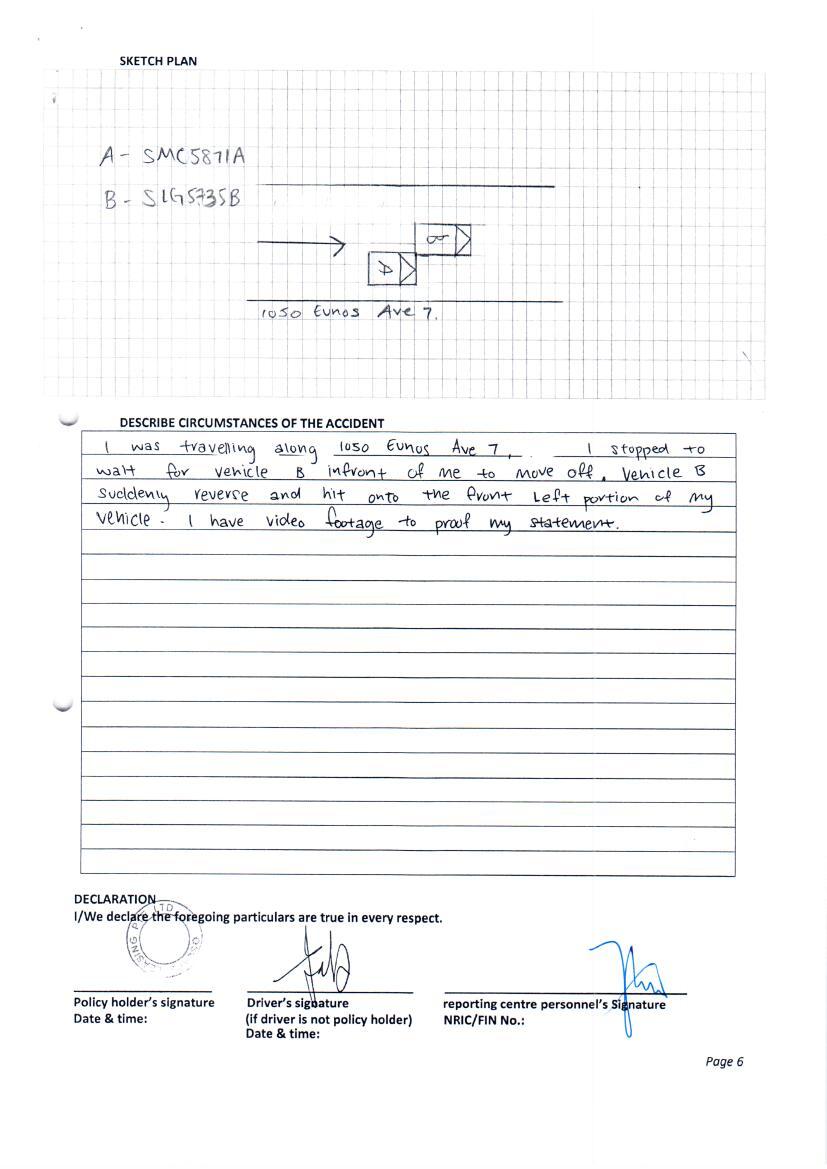 SKETCH PLAN
A - SMC5871A
B - SLG5735B
B
A
1050 Eunos Ave 7.
DESCRIBE CIRCUMSTANCES OF THE ACCIDENT
I was travelling along 1050 Eunos Ave 7, I stopped to
wait for vehicle B infront of me to move off, Vehicle B
Suddenly reverse and hit onto the front Left portion of my
Vehicle. I have video footage to proof my statement.
DECLARATION
I/We declare the foregoing particulars are true in every respect.
LTD
Policy holder's signature
Date & time:
Driver's signature
(if driver is not policy holder)
Date & time:
reporting centre personnel's Signature
NRIC/FIN No.:
Page 6